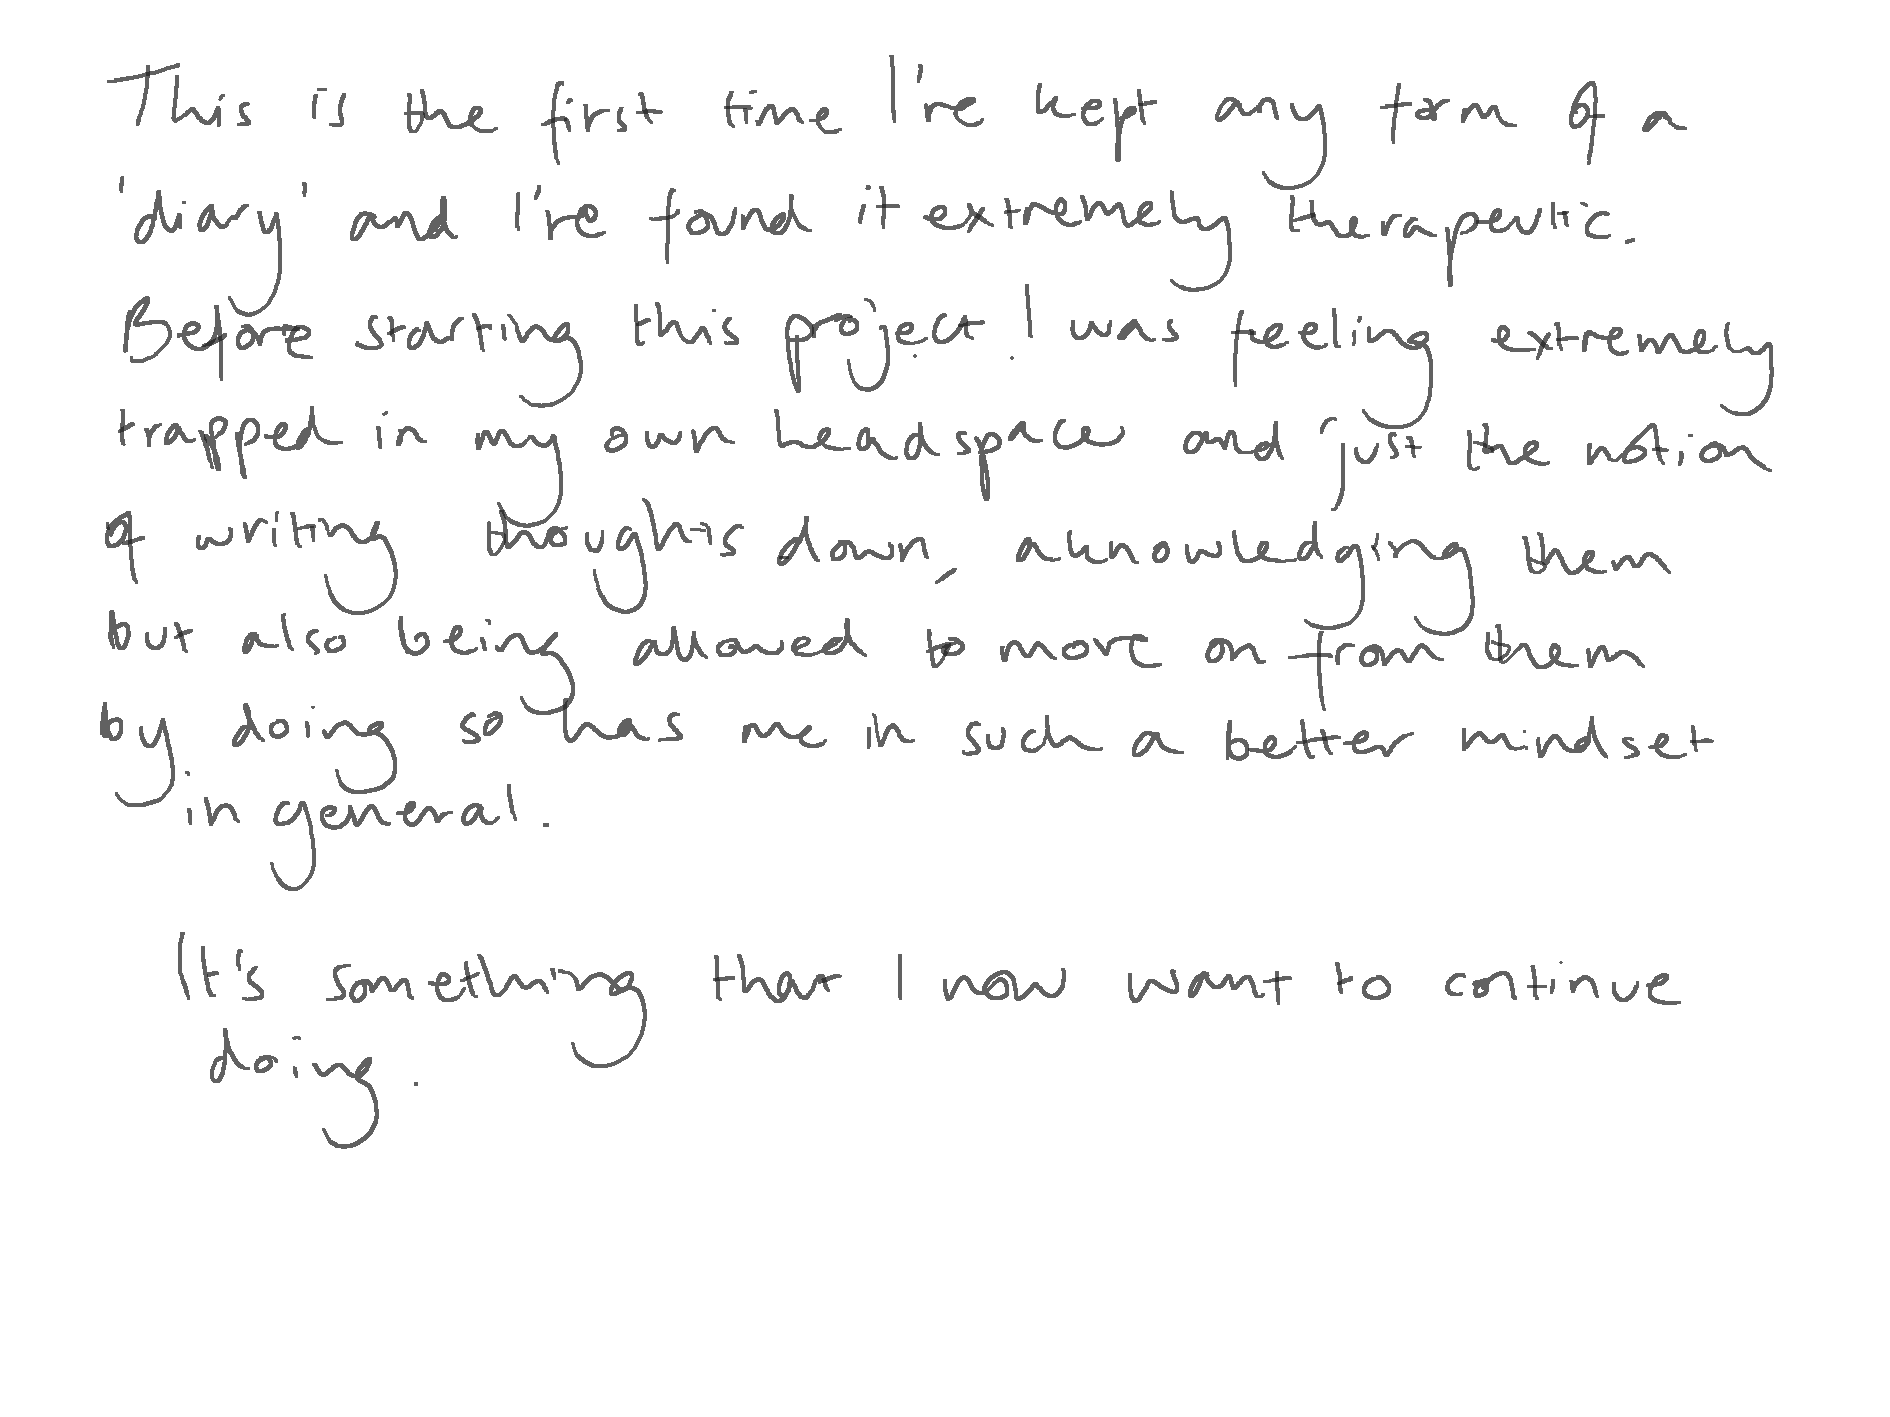 This is the first time I've kept any form of a
'diary' and I've found it extremely therapeutic.
Before starting this project I was feeling extremely
trapped in my own headspace and just the notion
of writing thoughts down, aknowledging them
but also being allowed to move on from them
by doing so has me in such a better mindset
in general.
It's something that I now want to continue
doing.